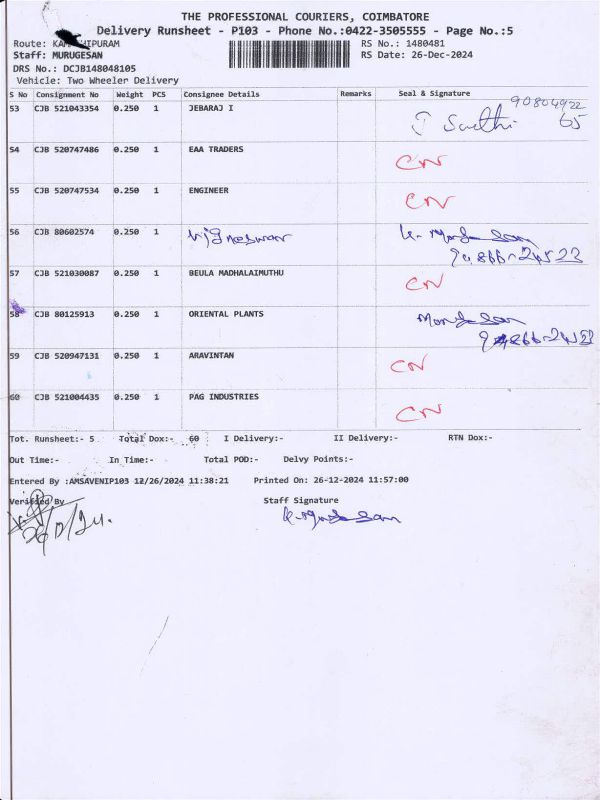 THE PROFESSIONAL COURIERS, COIMBATORE
Delivery Runsheet - P103 - Phone No.:0422-3505555 - Page No.:5
Route: KAMATCHIPURAM RS No.: 1480481
Staff: MURUGESAN RS Date: 26-Dec-2024
DRS No.: DCJB148048105
Vehicle: Two Wheeler Delivery
S No Consignment No Weight PCS Consignee Details Remarks Seal & Signature
53 CJB 521043354 0.250 1 JEBARAJ I 90804922
65
54 CJB 520747486 0.250 1 EAA TRADERS CN
55 CJB 520747534 0.250 1 ENGINEER CN
56 CJB 80602574 0.250 1 Vigneswar
57 CJB 521030087 0.250 1 BEULA MADHALAIMUTHU CN
58 CJB 80125913 0.250 1 ORIENTAL PLANTS
59 CJB 520947131 0.250 1 ARAVINTAN CN
60 CJB 521004435 0.250 1 PAG INDUSTRIES CN
Tot. Runsheet:- 5 Total Dox:- 60 I Delivery:- II Delivery:- RTN Dox:-
Out Time:- In Time:- Total POD:- Delvy Points:-
Entered By :AMSAVENIP103 12/26/2024 11:38:21 Printed On: 26-12-2024 11:57:00
Verified By Staff Signature
26/12/24.